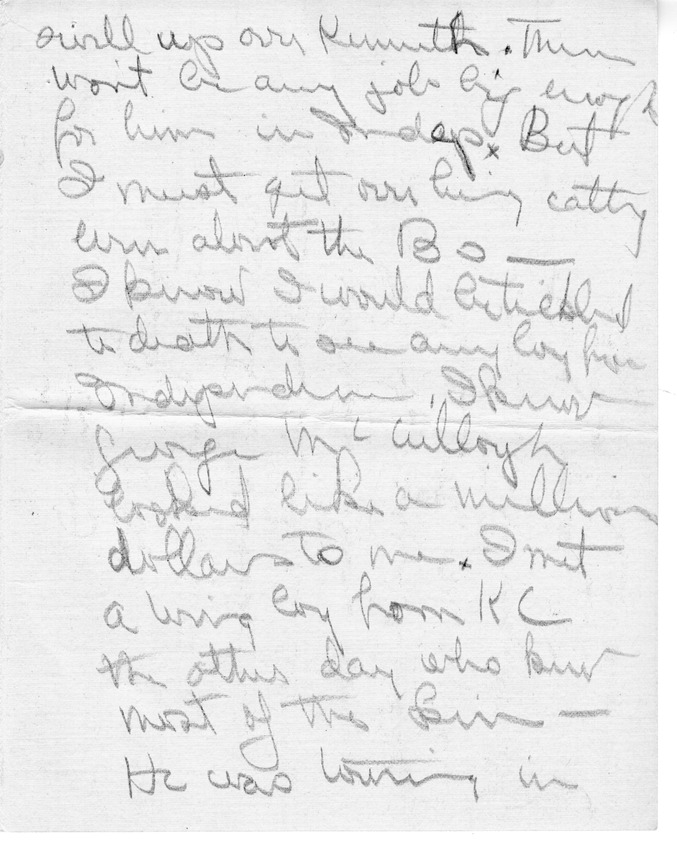 swell up over Kenneth. There
won't be any job big enough
for him in Indep. But
I must get over being catty
even about the Bo —
I know I would be tickled
to death to see any boy from
Independence. I know
George McCullogh
looked like a million
dollars to me. I met
a boy from KC
the other day who knew
most of the
He was touring in